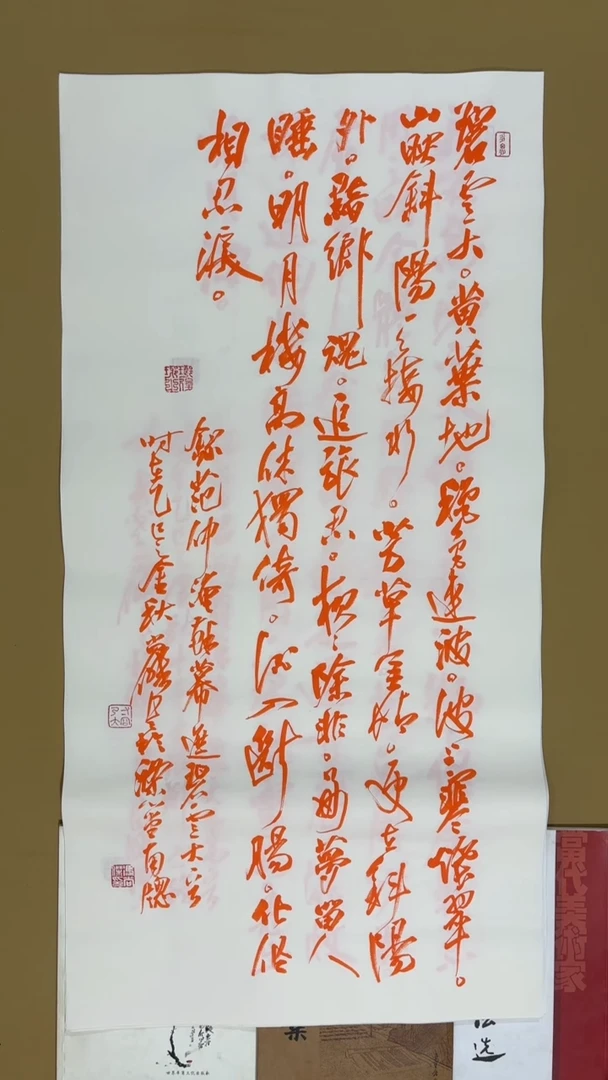 碧雲天。黃葉地。秋色連波。波上寒煙翠。
山映斜陽天接水。芳草無情。更在斜陽
外。黯鄉魂。追旅思。夜夜除非。好夢留人
睡。明月樓高休獨倚。酒入愁腸。化作
相思淚。
錄范仲淹蘇幕遮碧雲天
时在乙巳金秋
南牕